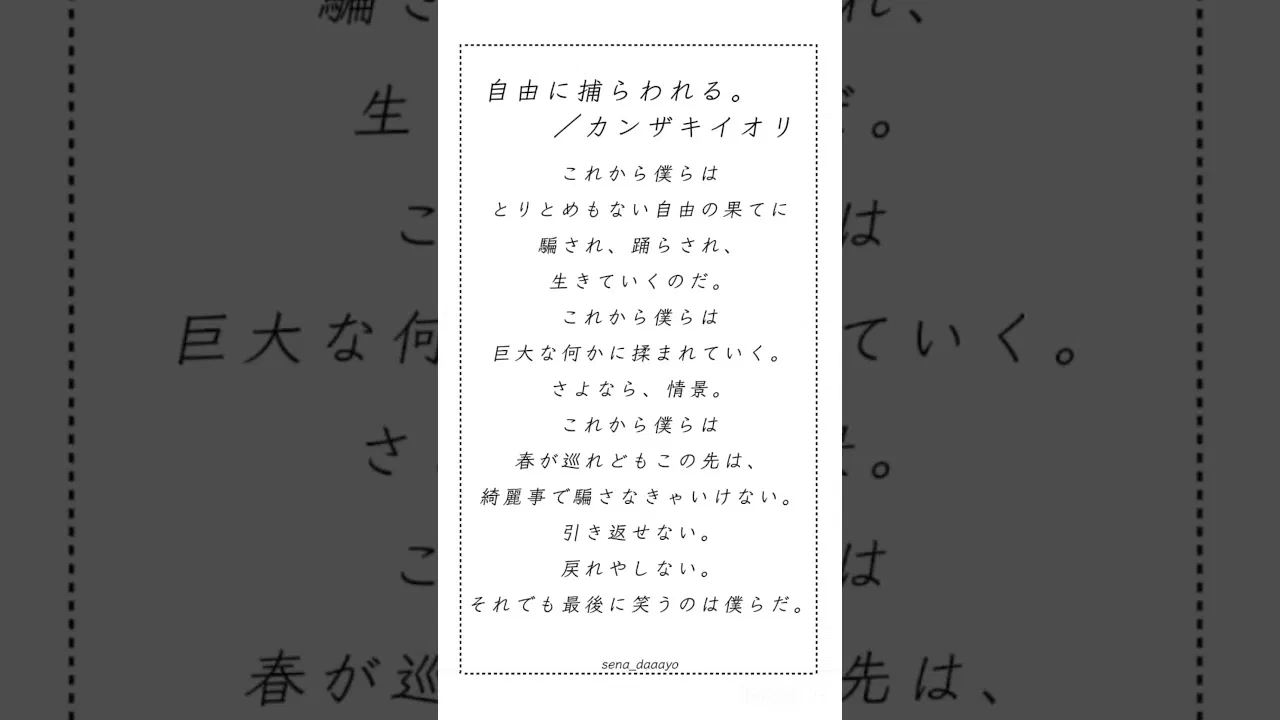 自由に捕らわれる。
／カンザキイオリ
これから僕らは
とりとめもない自由の果てに
騙され、踊らされ、
生きていくのだ。
これから僕らは
巨大な何かに揉まれていく。
さよなら、情景。
これから僕らは
春が巡れどもこの先は、
綺麗事で騙さなきゃいけない。
引き返せない。
戻れやしない。
それでも最後に笑うのは僕らだ。
sena_daaayo